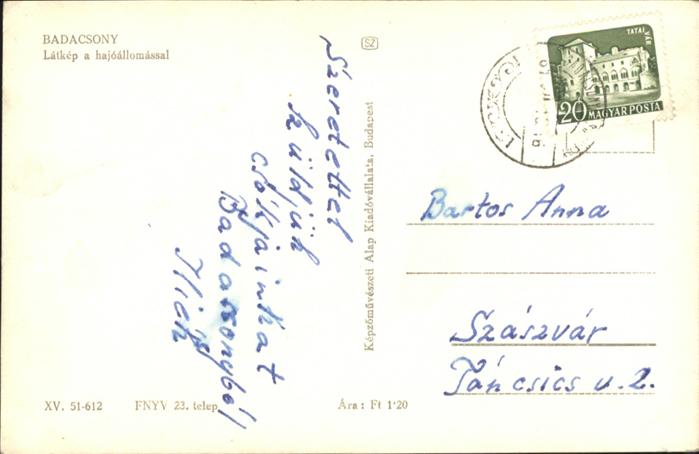 BADACSONY
Látkép a hajóállomással
Szeretettel
küldjük
csókjainkat
Badacsonyból,
XV. 51-612
FNYV 23. telep
Ára: Ft 1'20
Képzőművészeti Alap Kiadóvállalata, Budapest
SZ
TATAI
VÁR
20 MAGYAR POSTA
Bartos Anna
Szászvár
Táncsics u. 2.